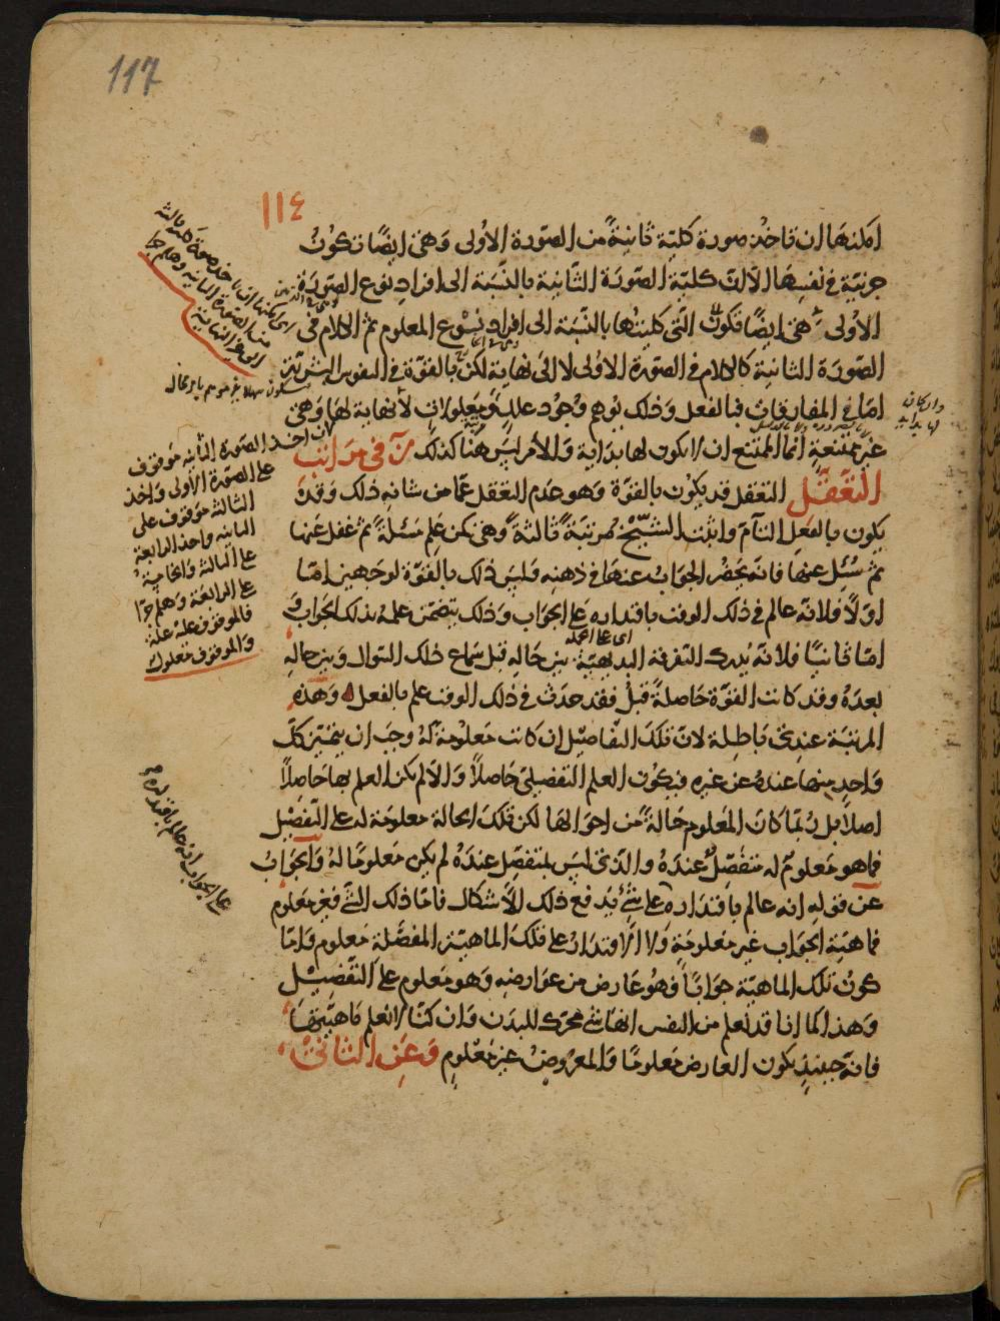 117
١١٤
امكنها ان تاخذ صورة كلية ثانية من الصورة الاولى وهى ايضا تكون
جزئية فى نفسها الا ان كلية الصورة الثانية بالنسبة الى افراد نوع الصورة
الاولى هى ايضا تكون التى كليتها بالنسبة الى افراد نوع المعلوم ثم الكلام فى
الصورة الثانية كالكلام فى الصورة الاولى لا الى نهاية لكن بالقوة فى النفوس البشرية
اما فى المفارقات فبالفعل وذلك يوهم وجود علل ومعلولات لا نهاية لها وهى
غير ممتنعة انما الممتنع ان لا يكون لها بداية والامر ليس هنا كذلك فى مراتب
التعقل التعقل قد يكون بالقوة وهو عدم التعقل عما من شانه ذلك وقد
يكون بالفعل التام واثبت الشيخ مرتبة ثالثة وهى كمن علم مسئلة ثم غفل عنها
ثم سئل عنها فانه يحضر الجواب عنها فى ذهنه وليس ذلك بالقوة لوجهين اما
اولا فلانه عالم فى ذلك الوقت باقتداره على الجواب وذلك يتضمن علمه بذلك الجواب و
اما ثانيا فلانه يدرك التفرقة البديهية بين حاله قبل سماع ذلك السوال وبين حاله
بعده وقد كانت القوة حاصلة قبل فقد حدث فى ذلك الوقت علم بالفعل وهذه
المرتبة عندى باطلة لان تلك التفاصيل ان كانت معلومة له وجب ان يتميز كل
واحد منها عنده عن غيره فيكون العلم التفصيلى حاصلا والا لم يكن العلم بها حاصلا
اصلا بل ربما كان المعلوم حالة من احوالها لكن تلك الحالة معلومة له على التفصيل
فما هو معلوم له متفصل عنده والذى ليس بمتفصل عنده لم يكن معلوما له والجواب
عن قوله انه عالم باقتداره على شىء يدفع ذلك الاشكال فاما ذلك الشىء فغير معلوم
فماهية الجواب غير معلومة ولا الاقتدار على تلك الماهية المفصلة معلوم واما
كون تلك الماهية جوابا فهو عارض من عوارضه وهو معلوم على التفصيل
وهذا كما انا قد نعلم من النفس انها شىء محرك للبدن وان كنا لا نعلم ماهيتها
فانه حينئذ يكون العارض معلوما والمعروض غير معلوم وعن الثانى
اى على الجملة
اى امكنها ان تاخذ صورة كلية ثالثة
من الصورة الثانية وهلم جرا
الى غير النهاية
ان اخذ الصورة الثانية موقوف
على الصورة الاولى واخذ
الثالثة موقوف على
الثانية واخذ الرابعة
على الثالثة والخامسة
على الرابعة وهلم جرا
فالموقوف عليه علة
والموقوف معلول
على الجواب انه عالم باقتداره